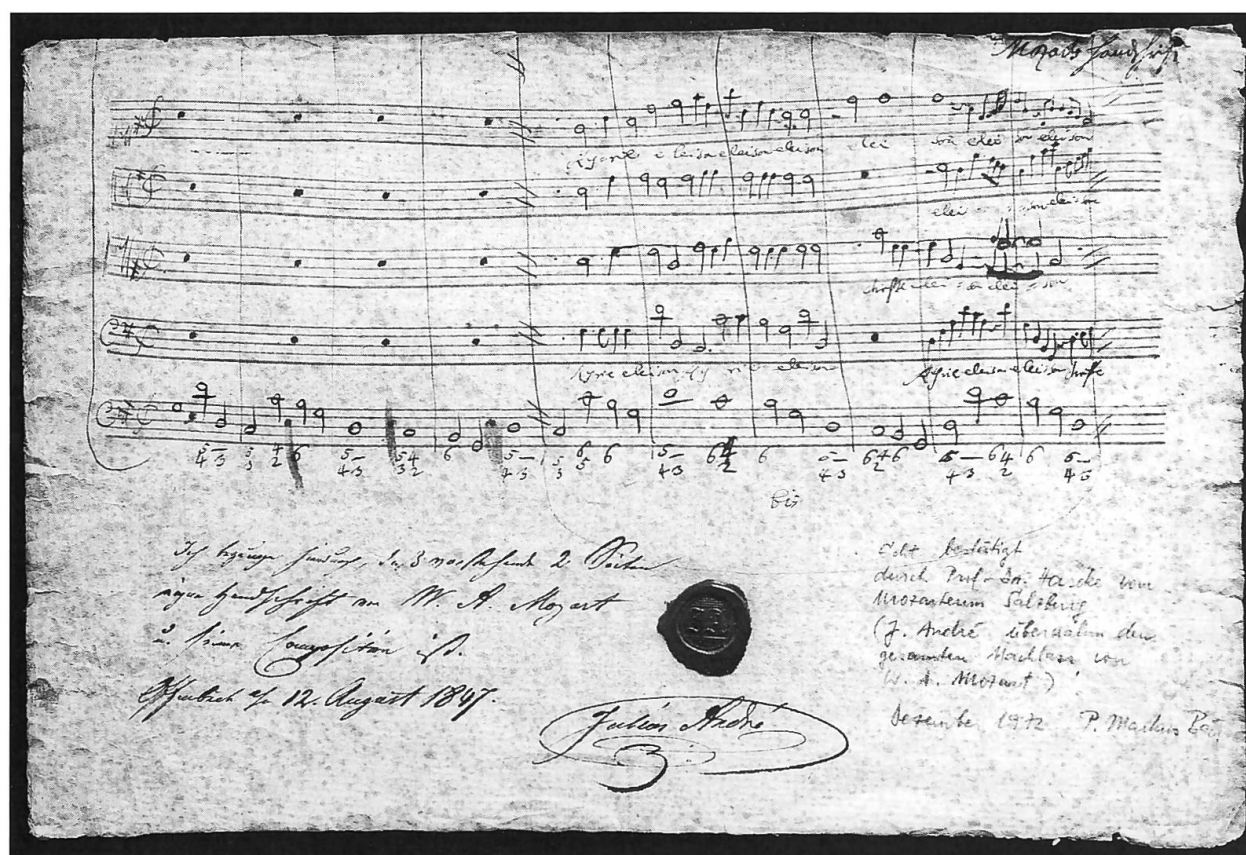 Mozarts Handschrift
Kyrie eleison eleison eleison elei - son elei son eleison
elei - son eleison
christe elei - son elei - son
Kyrie eleison Ky rie eleison Kyrie eleison eleison christe
bis
Ich bezeuge hierdurch, daß vorstehende 2 Seiten
eigne Handschrift von W. A. Mozart
u. seiner Composition ist.
Offenbach a/m 12. August 1847.
Julius André
Echt bestätigt
durch Prof. Dr. vom
Mozarteum Salzburg
(J. André übernahm den
gesamten Nachlass von
W. A. Mozart)
Dezember 1972 P. Markus